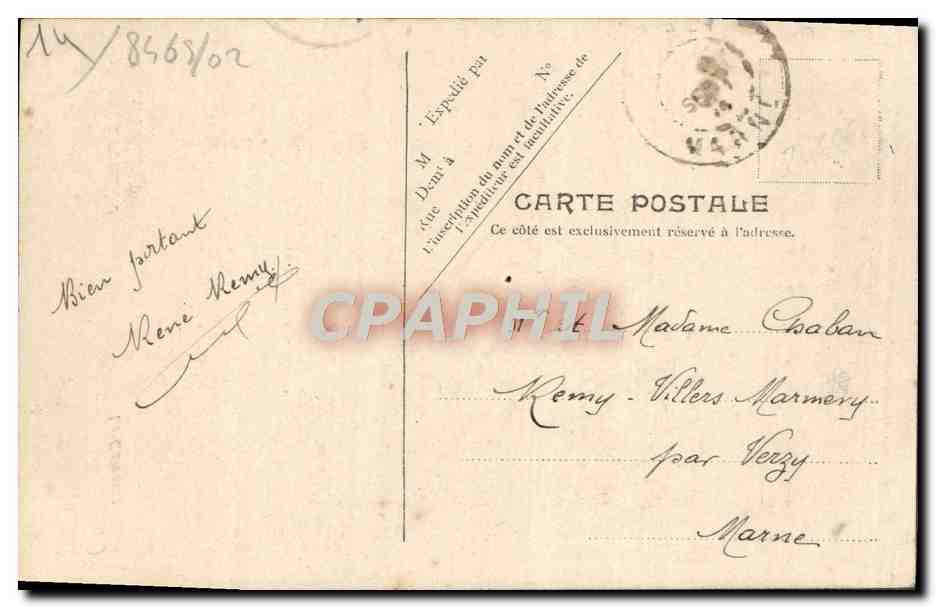 14 8469/02
Expédié par
M N°
Demt à
Rue
L'inscription du nom et de l'adresse de
l'expéditeur est facultative.
MARNE
CARTE POSTALE
Ce côté est exclusivement réservé à l'adresse.
Bien portant
René Remy
CPAPHIL
M et Madame Chaban
Remy - Villers Marmery
par Verzy
Marne